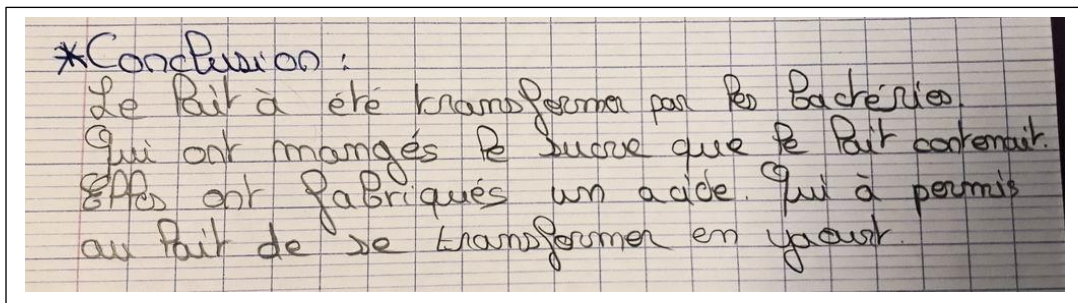 *Conclusion :
Le lait à été transformer par les bactéries.
Qui ont mangés le sucre que le lait contenait.
Elles ont fabriqués un acide. Qui à permis
au lait de se transformer en yaourt.